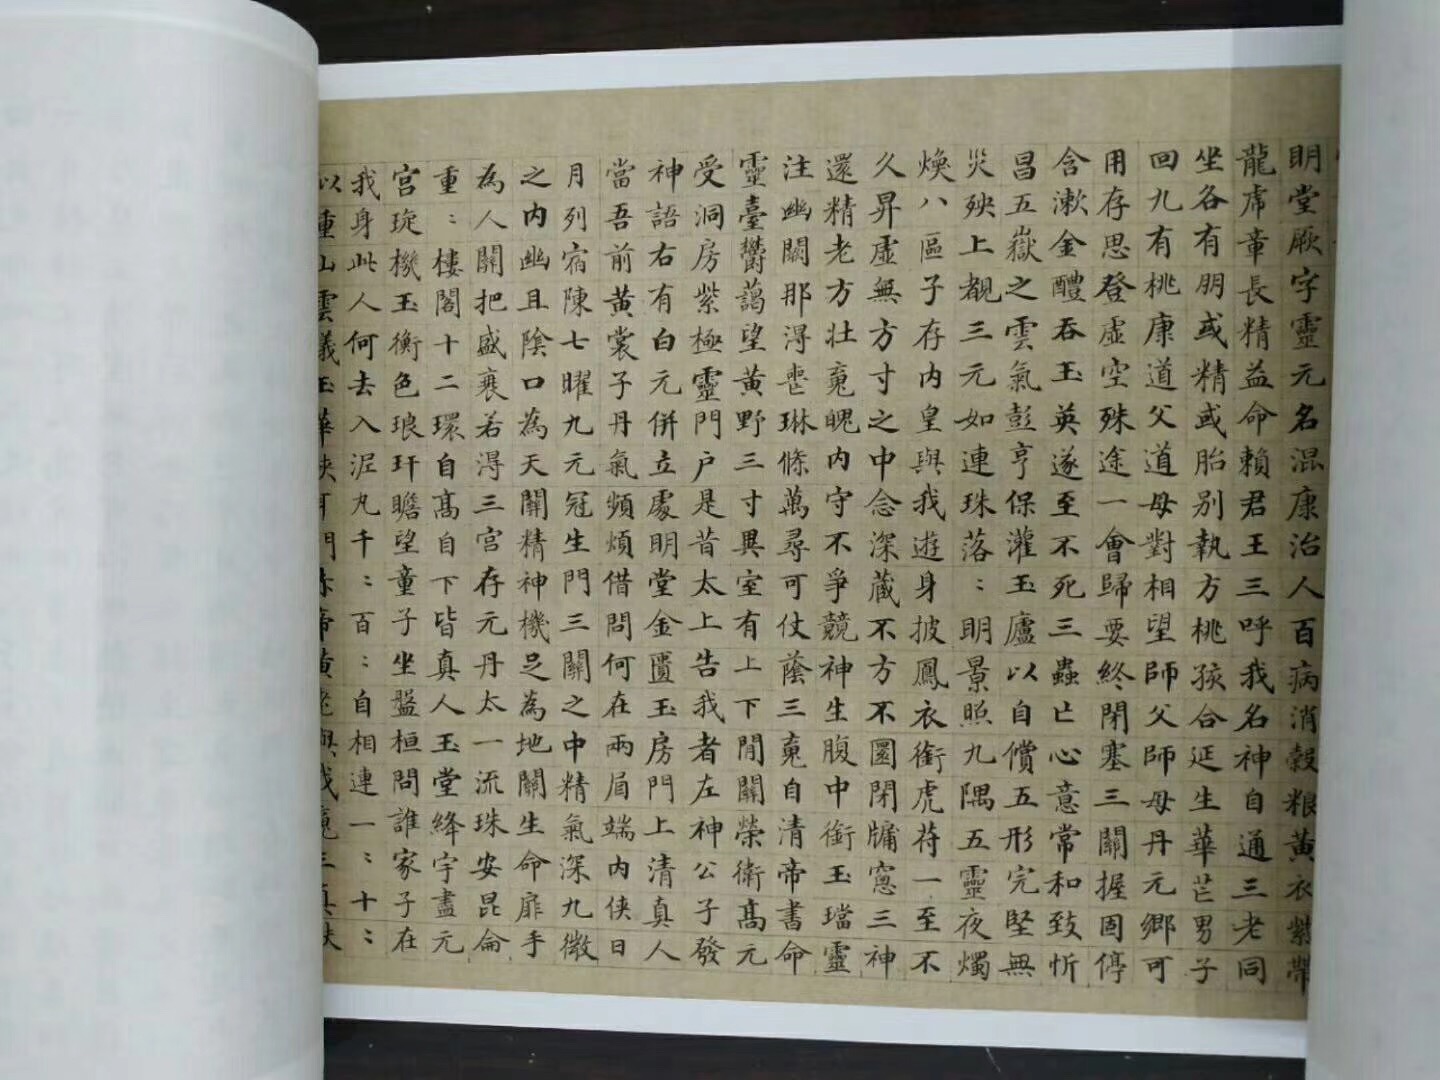 明堂厥字靈元名混康治人百病消穀粮黄衣紫帶
龍虎章長精益命賴君王三呼我名神自通三老同
坐各有朋或精或胎别執方桃孩合延生華芒男子
回九有桃康道父道母對相望師父師母丹元鄉可
用存思登虚空殊途一會歸要終閉塞三關握固停
含漱金醴吞玉英遂至不死三蟲亡心意常和致忻
昌五嶽之雲氣彭亨保灌玉廬以自償五形完堅無
災殃上覩三元如連珠落〻明景照九隅五靈夜燭
煥八區子存内皇與我遊身披鳳衣銜虎苻一至不
久昇虚無方寸之中念深藏不方不圓閉牖窻三神
還精老方壮䰟魄内守不爭競神生腹中銜玉璫靈
注幽闕那淂喪琳條萬尋可仗蔭三䰟自清帝書命
靈臺鬱藹望黄野三寸異室有上下閒關榮衛髙元
受洞房紫極靈門户是昔太上告我者左神公子發
神語右有白元併立處明堂金匱玉房門上清真人
當吾前黄裳子丹氣頻煩借問何在兩眉端内侠日
月列宿陳七曜九元冠生門三關之中精氣深九微
之内幽且隂口為天關精神機足為地關生命扉手
為人關把盛衰若淂三宮存元丹太一流珠安昆侖
重〻樓閣十二環自髙自下皆真人玉堂絳宇盡元
宫琁機玉衡色琅玕瞻望童子坐盤桓問誰家子在
我身此人何去入泥丸千〻百〻自相連一〻十〻
以重山雲儀玉華侠耳門赤帝黄老與我䰟三真扶